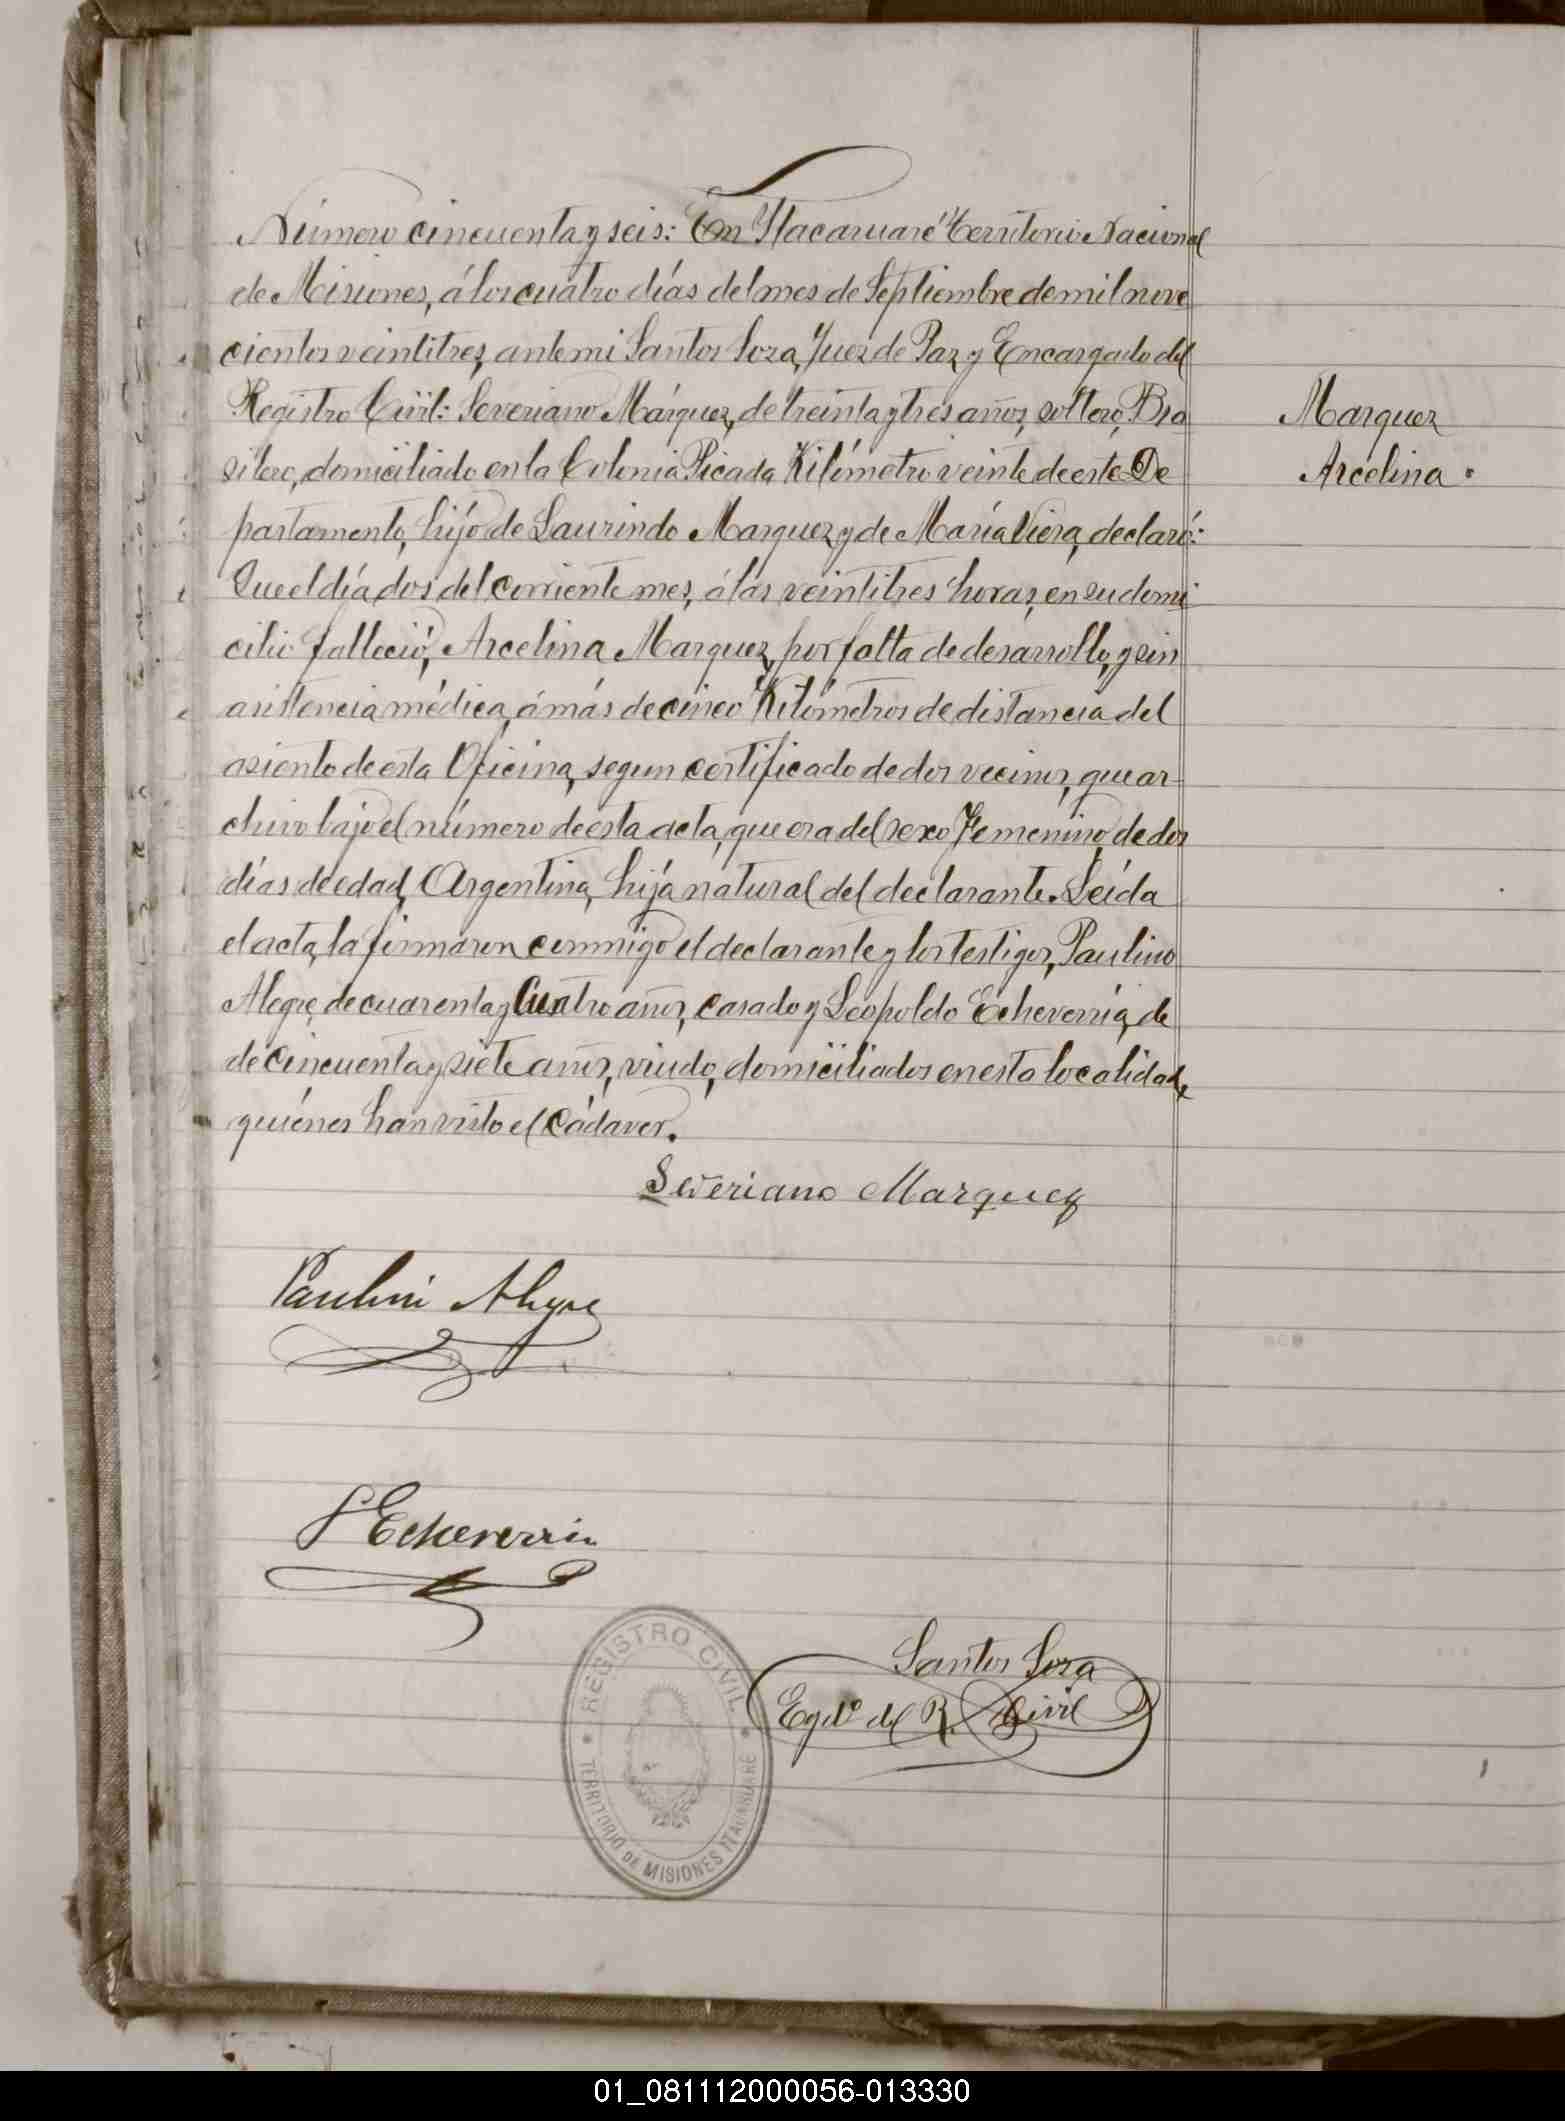 Número cincuenta y seis: En Itacaruaré Territorio Nacional
de Misiones, á los cuatro días del mes de Septiembre de mil nove
cientos veintitres, ante mi Santos Soza, Juez de Paz y Encargado del
Registro Civil: Severiano Márquez, de treinta y tres años, soltero, Bra
silero, domiciliado en la Colonia Picada Kilómetro veinte de este De
partamento, hijo de Laurindo Marquez y de María Viera, declaró:
Que el día dos del corriente mes, á las veintitres horas, en su domi
cilio falleció, Arcelina Marquez, por falta de desarrollo, y sin
asistencia médica, á más de cinco Kilómetros de distancia del
asiento de esta Oficina, segun certificado de dos vecinos, que ar-
chivo bajo el número de esta acta, que era del sexo Femenino, de dos
días de edad, Argentina, hija natural del declarante. Leída
el acta, la firmaron conmigo el declarante y los testigos, Paulino
Alegre, de cuarenta y Cuatro años, casado y Leopoldo Echeverría, de
de cincuenta y siete años, viudo, domiciliados en esta localidad,
quiénes han visto el cádaver.
Marquez
Arcelina.
Severiano Marquez
Paulino Alegre
L Echeverria
Santos Soza
Egdo del R. Civil
REGISTRO CIVIL
TERRITORIO DE MISIONES ITACARUARÉ
01_081112000056-013330